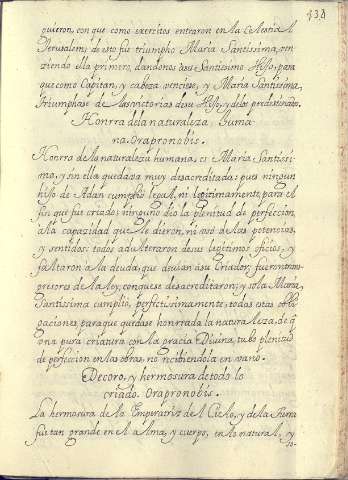 338
quieron, con que como exercitos entraron en la celestial
Jerusalem; de esto fue triumpho Maria Santissima, ven
ziendo ella primero, dandonos à su Santissimo Hijo, para
que como Capitan, y cabeza venciese, y Maria Santissima,
triumphase de las victorias de su Hijo, y de los predestinados.
Honrra de la naturaleza Huma
na. Ora pro nobis.
Honrra de la naturaleza humana, es Maria Santissi
ma, y sin ella quedara muy desacreditada; pues ningun
hijo de Adan cumplio legal, ni legitimamente, para el
fin que fue criado; ninguno dio la plenitud de perfeccion,
a la capacidad que le dieron, ni uso de las potencias,
y sentidos: todos adulteraron de sus legitimos oficios, y
faltaron a la deuda, que devian a su Criador; fueron trans
gresores de la ley, con que se desacreditaron; y sola Maria
Santissima cumplio, perfectissimamente, todas estas obli
gaciones para que quedase honrrada la naturaleza, de q̃
una pura criatura con la gracia Divina, tubo plenitud
de perfeccion en las obras, no recibiendola en vano.
Decoro, y hermosura de todo lo
criado. Ora pro nobis.
La hermosura de la Emperatriz del Cielo, y de la tierra
fue tan grande en el alma, y cuerpo, en lo natural, y
so-